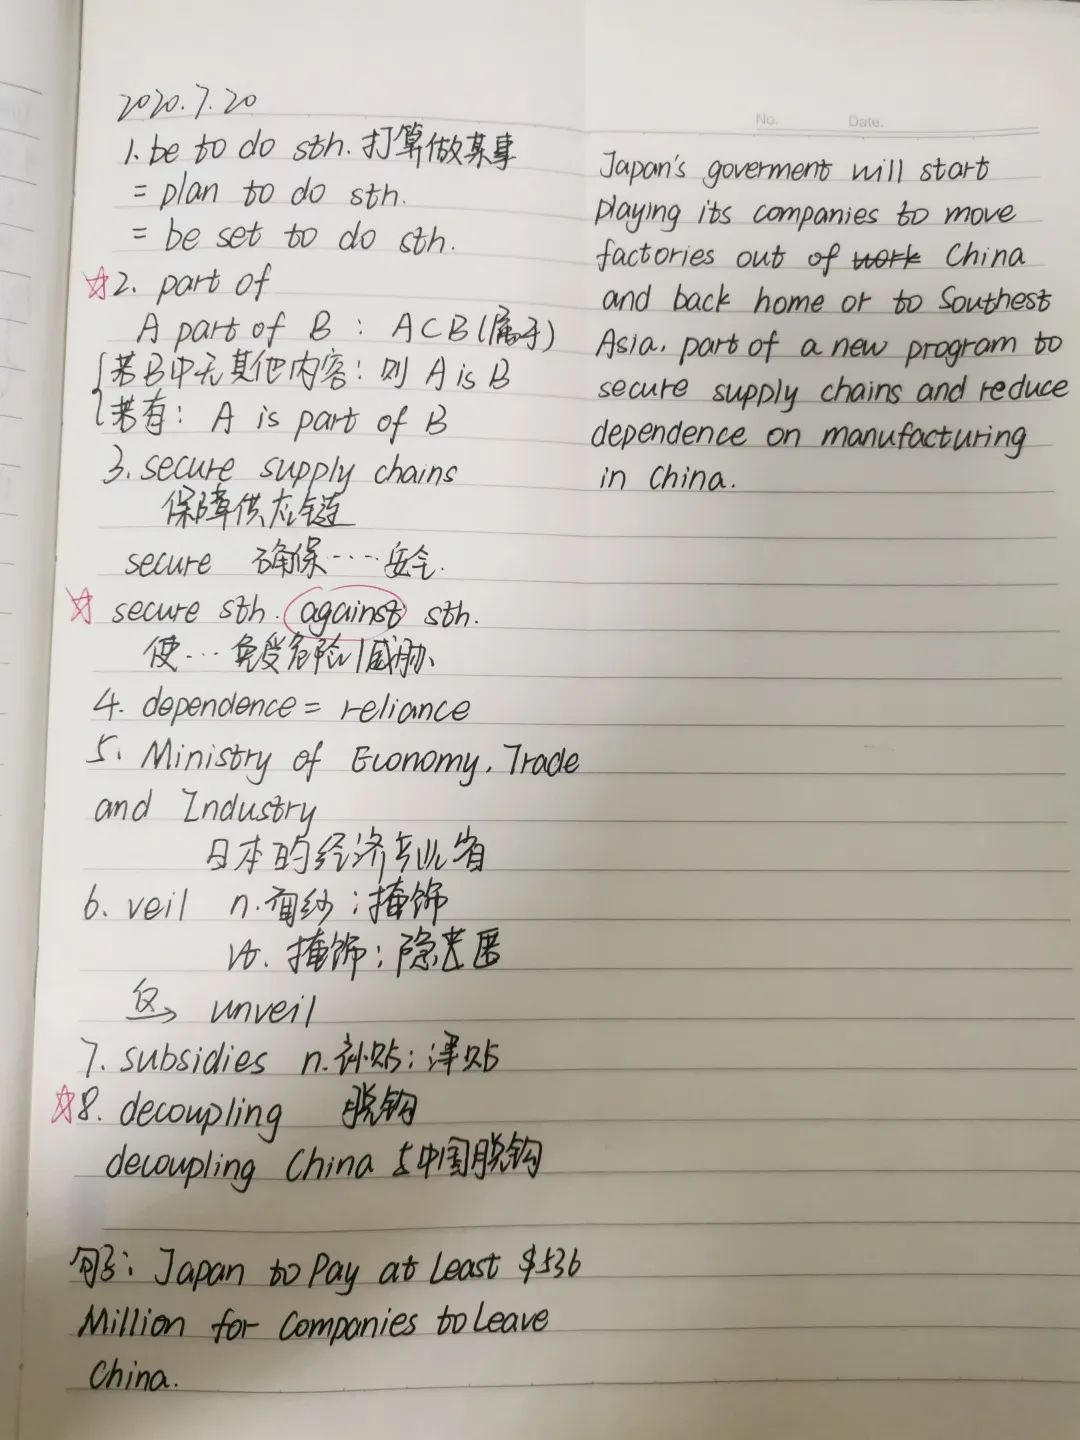 2020.7.20
1. be to do sth. 打算做某事
= plan to do sth.
= be set to do sth.
☆2. part of
A part of B : A⊂B(属于)
{若B中无其他内容: 则 A is B
{若有: A is part of B
3. secure supply chains
保障供应链
secure 确保……安全.
☆ secure sth. against sth.
使…免受危险/威胁
4. dependence = reliance
5. Ministry of Economy, Trade
and Industry
日本的经济产业省
6. veil n.面纱;掩饰
vt. 掩饰;隐匿
反→ unveil
7. subsidies n.补贴;津贴
☆8. decoupling 脱钩
decoupling China 与中国脱钩
句子: Japan to Pay at Least $536
Million for Companies to Leave
China.
No. Date.
Japan's goverment will start
playing its companies to move
factories out of work China
and back home or to Southest
Asia, part of a new program to
secure supply chains and reduce
dependence on manufacturing
in China.